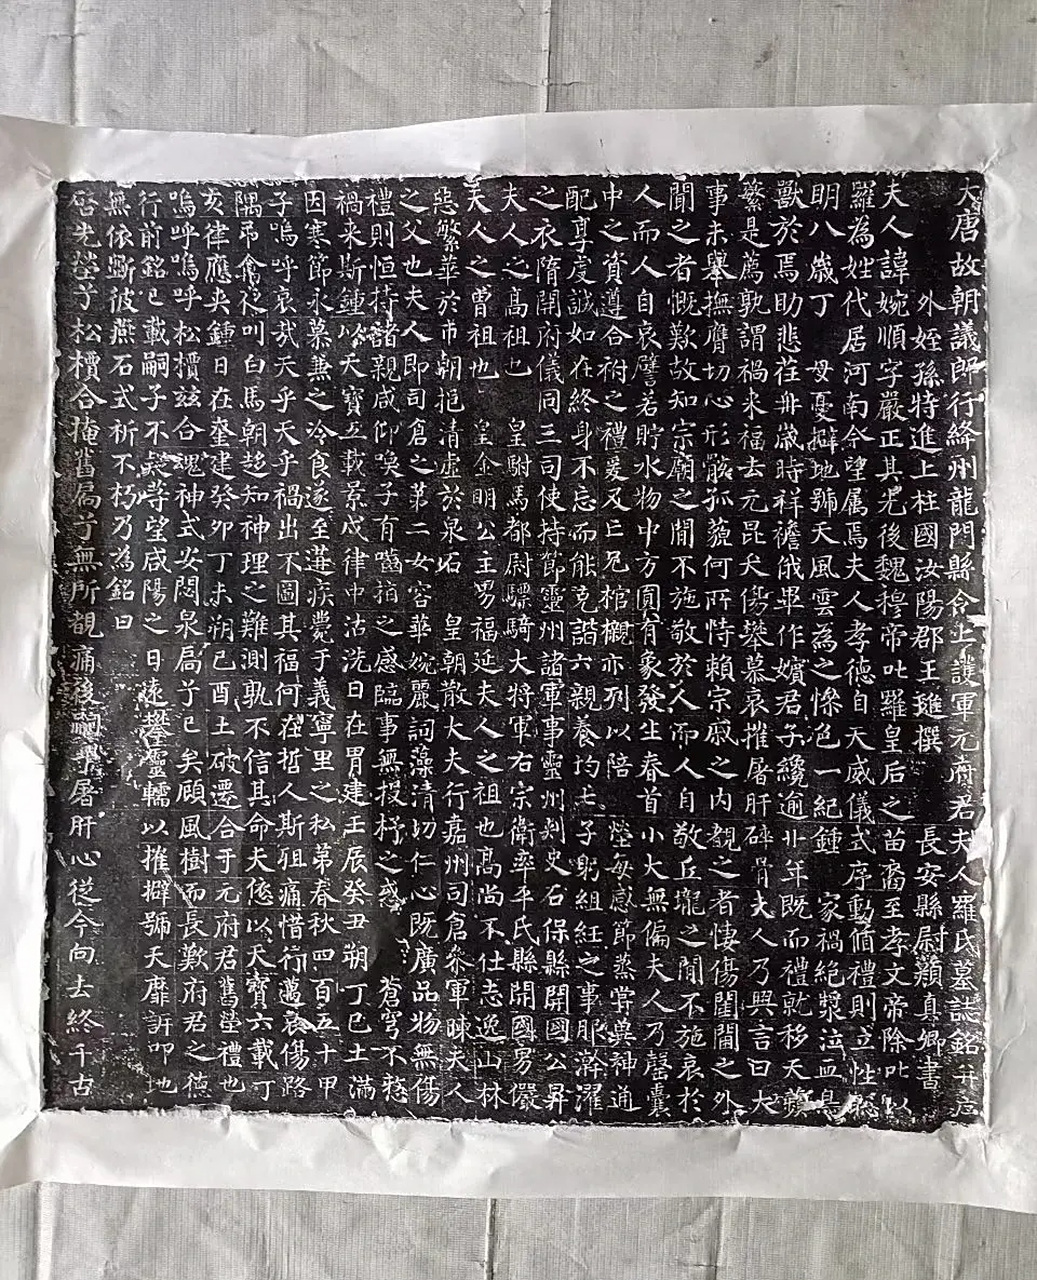 大唐故朝議郎行絳州龍門縣令上護軍元府君夫人羅氏墓誌銘并序
外姪孫特進上柱國汝陽郡王璡撰 長安縣尉顏真卿書
夫人諱婉順字嚴正其先後魏穆帝叱羅皇后之苗裔至孝文帝除叱以
羅為姓代居河南今望属焉夫人孝德自天威儀式序動循禮則立性聰
明八歲丁 母憂擗地號天風雲為之慘色一紀鍾 家禍絕漿泣血鳥
獸於焉助悲荏苒歲時祥禫俄畢作嬪君子纔逾廿年既而禮就移天蘋
繁是薦孰謂禍来福去元昆夭傷攀慕哀摧屠肝碎骨夫人乃興言曰大
事未舉撫膺切心形骸孤藐何所恃賴宗戚之内覩之者悽傷閭閈之外
聞之者慨歎故知宗廟之間不施敬於人而人自敬丘壠之間不施哀於
人而人自哀譬若貯水物中方圓有象發生春首小大無偏夫人乃罄囊
中之資遵合祔之禮爰及亡兄棺櫬亦列以陪 塋每感節蒸甞與神通
配享虔誠如在終身不忘而能克諧六親養均七子躬組紝之事服澣濯
之衣隋開府儀同三司使持節靈州諸軍事靈州刺史石保縣開國公昇
夫人之高祖也 皇駙馬都尉驃騎大將軍右宗衛率平氏縣開國男儼
夫人之曾祖也 皇金明公主男福延夫人之祖也高尚不仕志逸山林
惡繁華於市朝挹清虛於泉石 皇朝散大夫行嘉州司倉叅軍暕夫人
之父也夫人即司倉之第二女容華婉麗詞藻清切仁心既廣品物無傷
禮則恒持諸親咸仰喚子有嚙指之感臨事無投杼之惑 蒼穹不憖
禍来斯鍾以天寶五載景戌律中沽洗日在胃建壬辰癸丑朔 丁巳土滿
因寒節永慕兼之冷食遂至遘疾薨于義寧里之私第春秋四百五十甲
子嗚呼哀哉天乎天乎禍出不圖其福何在哲人斯殂痛惜行邁哀傷路
隅弔禽夜叫白馬朝趍知神理之難測孰不信其命夫偯以天寶六載丁
亥律應夾鍾日在奎建癸卯丁未朔己酉土破遷合于元府君舊塋禮也
嗚呼嗚呼松檟兹合魂神式安悶泉扃兮已矣顧風樹而長歎府君之德
行前銘已載嗣子不疑等望咸陽之日遠攀靈轜以摧擗號天靡訴叩地
無依斲彼燕石式祈不朽乃為銘曰
啓先塋兮松檟合掩舊扃兮無所覩痛後嗣兮屠肝心從今向去終千古